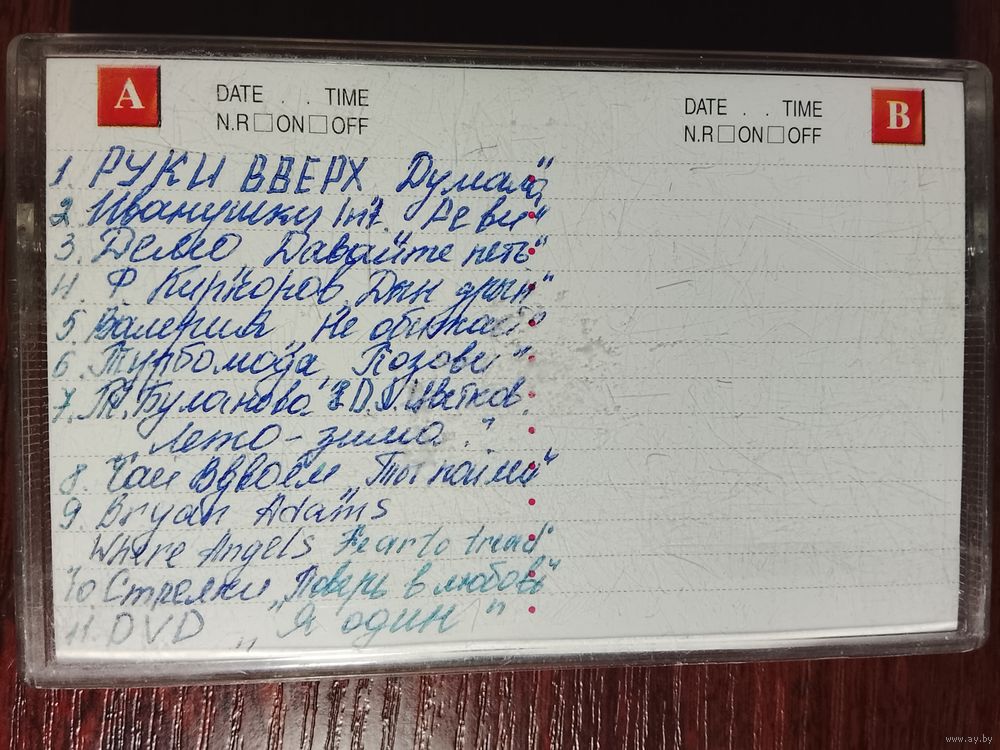 A DATE . . TIME DATE . . TIME B
N.R□ON□OFF N.R□ON□OFF
1. РУКИ ВВЕРХ Думала"
2. Иванушки Int. Реви"
3. Демо „Давайте петь"
4. Ф. Киркоров „Дын дын"
5. Валерия „Не обижай"
6. Турбомода „Позови"
7. Т. Буланова & DJ Цветков.
„Лето-зима."
8. Чай Вдвоём „Ты пойми"
9. Bryan Adams
Where Angels Fear to tread"
10 Стрелки „Поверь в любовь"
11. DVD „Я один"
www.ay.by